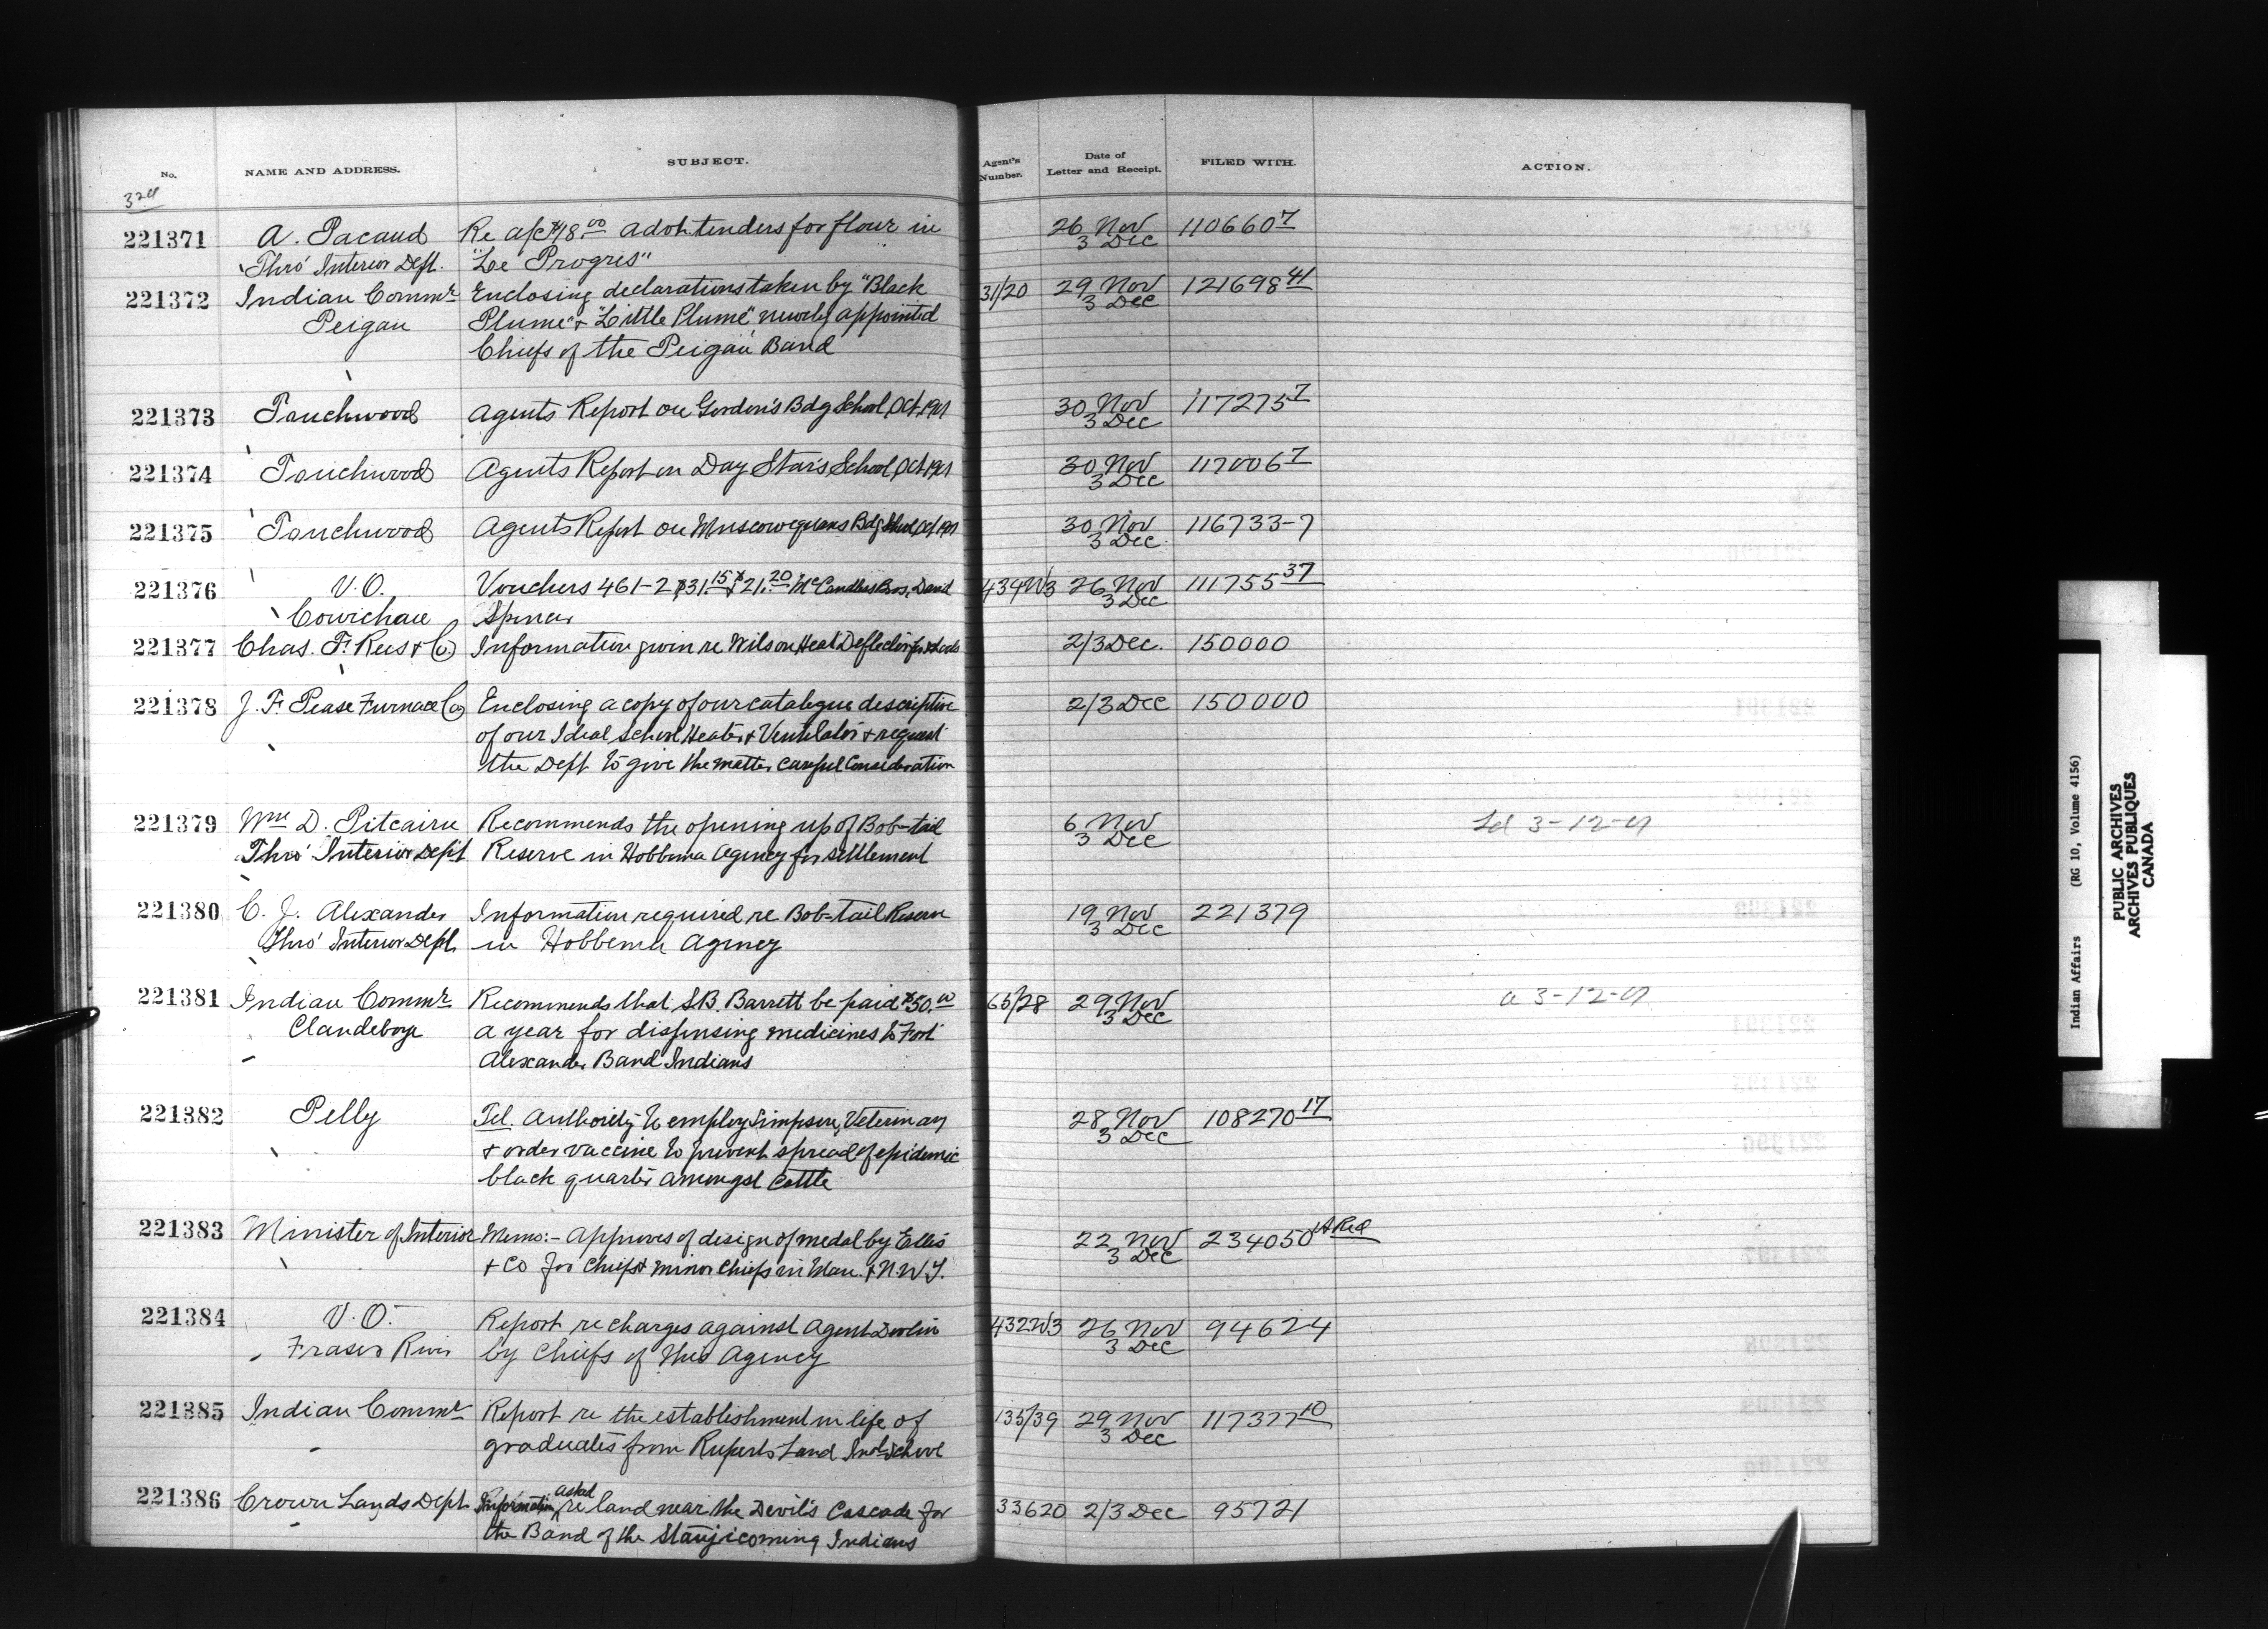 No. NAME AND ADDRESS. SUBJECT. Agent's Number. Date of Letter and Receipt. FILED WITH. ACTION.
324
221371 A. Pacaud Re a/c $18.00 advt. tenders for flour in 26 Nov 110660 7
Thro' Interior Dept. "Le Progres" 3 Dec
221372 Indian Commr Enclosing declarations taken by "Black 31/20 29 Nov 121698 41
Peigan Plume" + "Little Plume" newly appointed 3 Dec
Chiefs of the Peigan Band
221373 Touchwood Agents Report on Gordon's Bdg School, Oct. 1901 30 Nov 117275 7
3 Dec
221374 Touchwood Agents Report on Day Star's School, Oct 1901 30 Nov 117006 7
3 Dec
221375 Touchwood Agents Report on Muscowequans Bdg School, Oct 1901 30 Nov 116733-7
3 Dec.
221376 V.O. Vouchers 461-2 $31.15 + $21.20 McCandless Bros, David 434W3 26 Nov 111755 37
Cowichan Spencer 3 Dec
221377 Chas. F. Rees + Co. Information given re Wilson Heat Deflector for 2/3 Dec. 150000
221378 J. F. Pease Furnace Co Enclosing a copy of our catalogue descriptive 2/3 Dec 150000
of our Ideal School Heater + Ventilator + request
the Dept to give the matter careful consideration
221379 Wm D. Pitcairn Recommends the opening up of Bob-tail 6 Nov Ld 3-12-01
Thro' Interior Dep't Reserve in Hobbema Agency for settlement 3 Dec
221380 C. J. Alexander Information required re Bob-tail Reserve 19 Nov 221379
Thro' Interior Dept. in Hobbema Agency 3 Dec
221381 Indian Commr Recommends that S.B. Barrett be paid $50.00 65/28 29 Nov a 3-12-01
Clandeboye a year for dispensing medicines to Fort 3 Dec
Alexander Band Indians
221382 Pelly Tel. Authority to employ Simpson, Veterinary 28 Nov 108270 17
+ order vaccine to prevent spread of epidemic 3 Dec
black quarter amongst cattle
221383 Minister of Interior Memo:- Approves of design of medal by Ellis 22 Nov 234050
+ Co for Chiefs + minor Chiefs in Man. + N.W.T. 3 Dec
221384 V.O. Report re charges against Agent Devlin 432W3 26 Nov 94624
Fraser River by Chiefs of this Agency 3 Dec
221385 Indian Commr Report re the establishment in life of 135/39 29 Nov 117377 10
graduates from Ruperts Land Indl School 3 Dec
221386 Crown Lands Dept. Information asked re land near the Devil's Cascade for 33620 2/3 Dec 95721
the Band of the Indians
Indian Affairs (RG 10, Volume 4156)
PUBLIC ARCHIVES
ARCHIVES PUBLIQUES
CANADA